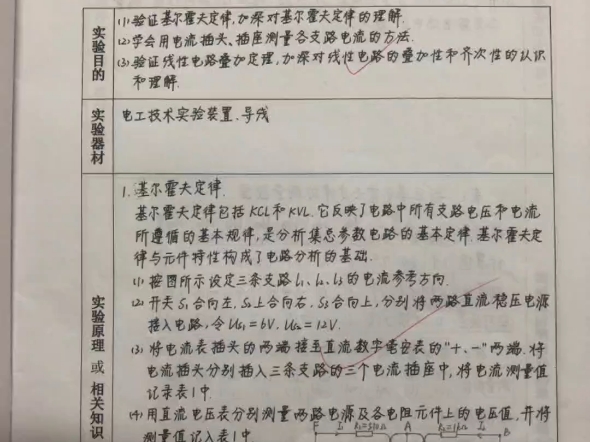 实验目的
(1) 验证基尔霍夫定律,加深对基尔霍夫定律的理解.
(2) 学会用电流插头、插座测量各支路电流的方法.
(3) 验证线性电路叠加定理,加深对线性电路的叠加性和齐次性的认识
和理解.
实验器材
电工技术实验装置、导线
实验原理 或 相关知识
1. 基尔霍夫定律.
基尔霍夫定律包括KCL和KVL.它反映了电路中所有支路电压和电流
所遵循的基本规律,是分析集总参数电路的基本定律.基尔霍夫定
律与元件特性构成了电路分析的基础.
(1) 按图所示设定三条支路I₁、I₂、I₃的电流参考方向.
(2) 开关S₁合向左,S₂上合向右,S₃合向上,分别将两路直流稳压电源
接入电路,令Us₁=6V,Us₂=12V.
(3) 将电流表插头的两端接至直流数字毫安表的“+、-”两端.将
电流插头分别插入三条支路的三个电流插座中,将电流测量值
记录表1中.
(4) 用直流电压表分别测量两路电源及各电阻元件上的电压值,并将
测量值记入表1中.
F I₁ R₁=510Ω A I₂ B